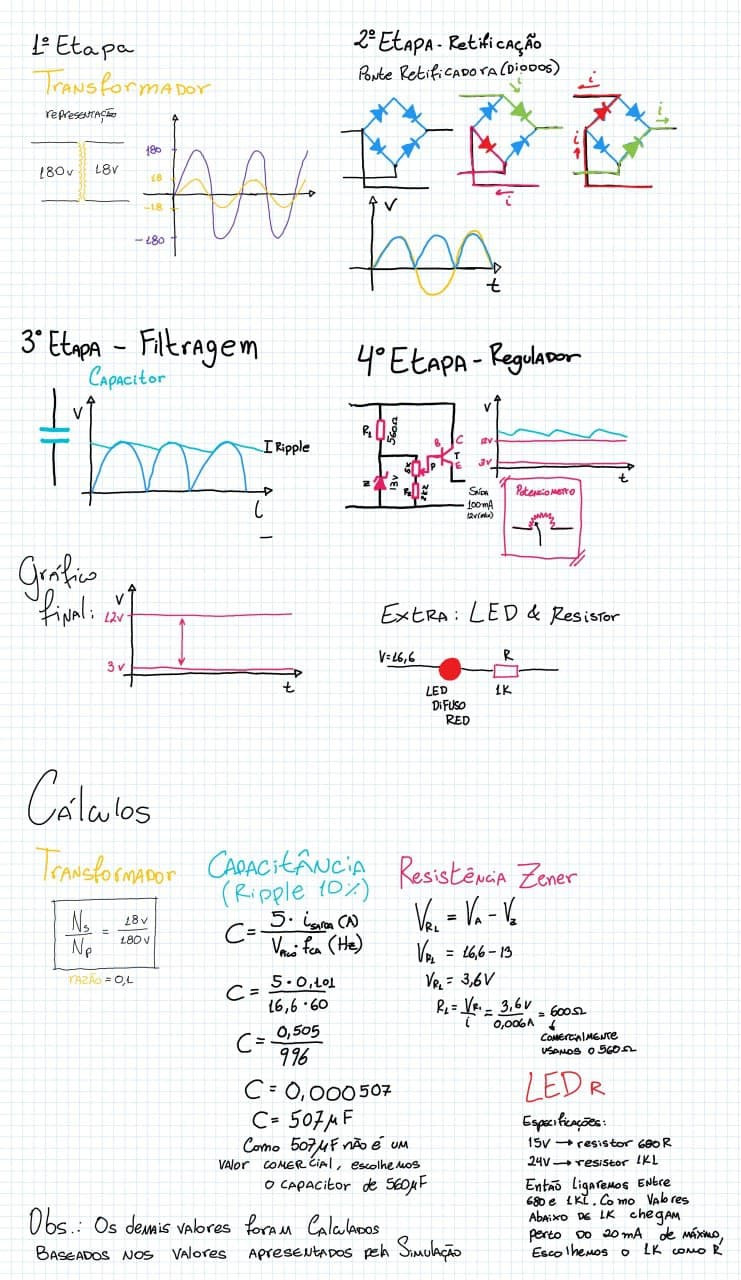 1º Etapa
Transformador
representação
180v
18v
180
18
-18
-180
2º Etapa - Retificação
Ponte Retificadora (Diodos)
i
i
i
i
i
V
t
3º Etapa - Filtragem
Capacitor
V
I Ripple
4º Etapa - Regulador
R1
560Ω
13V
B
C
T
E
P
2k2
Saída
100mA
12v (máx)
V
12v
3v
t
Potenciometro
Gráfico
final:
V
12v
3v
t
Extra: LED & Resistor
V=16,6
R
LED
Difuso
RED
1K
Cálculos
Transformador
Ns/Np = 18v/180v
razão = 0,1
Capacitância
(Ripple 10%)
C = 5 · isaída (A) / Vpico · fca (Hz)
C = 5 · 0,101 / 16,6 · 60
C = 0,505 / 996
C = 0,000507
C = 507μF
Como 507μF não é um
valor comercial, escolhemos
o capacitor de 560μF
Resistência Zener
VR1 = VA - Vz
VR1 = 16,6 - 13
VR1 = 3,6V
R1 = VR1/i = 3,6V/0,006A = 600Ω
comercialmente
usamos o 560Ω
LED R
Especificações:
15V → resistor 680R
24V → resistor 1K1
Então ligaremos entre
680 e 1K1. Como valores
abaixo de 1K chegam
perto do 20mA de máximo,
Escolhemos o 1K como R
Obs.: Os demais valores foram Calculados
baseados nos valores apresentados pela Simulação